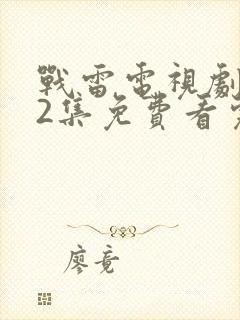 戰雷電視劇
2集免費看
廖竟